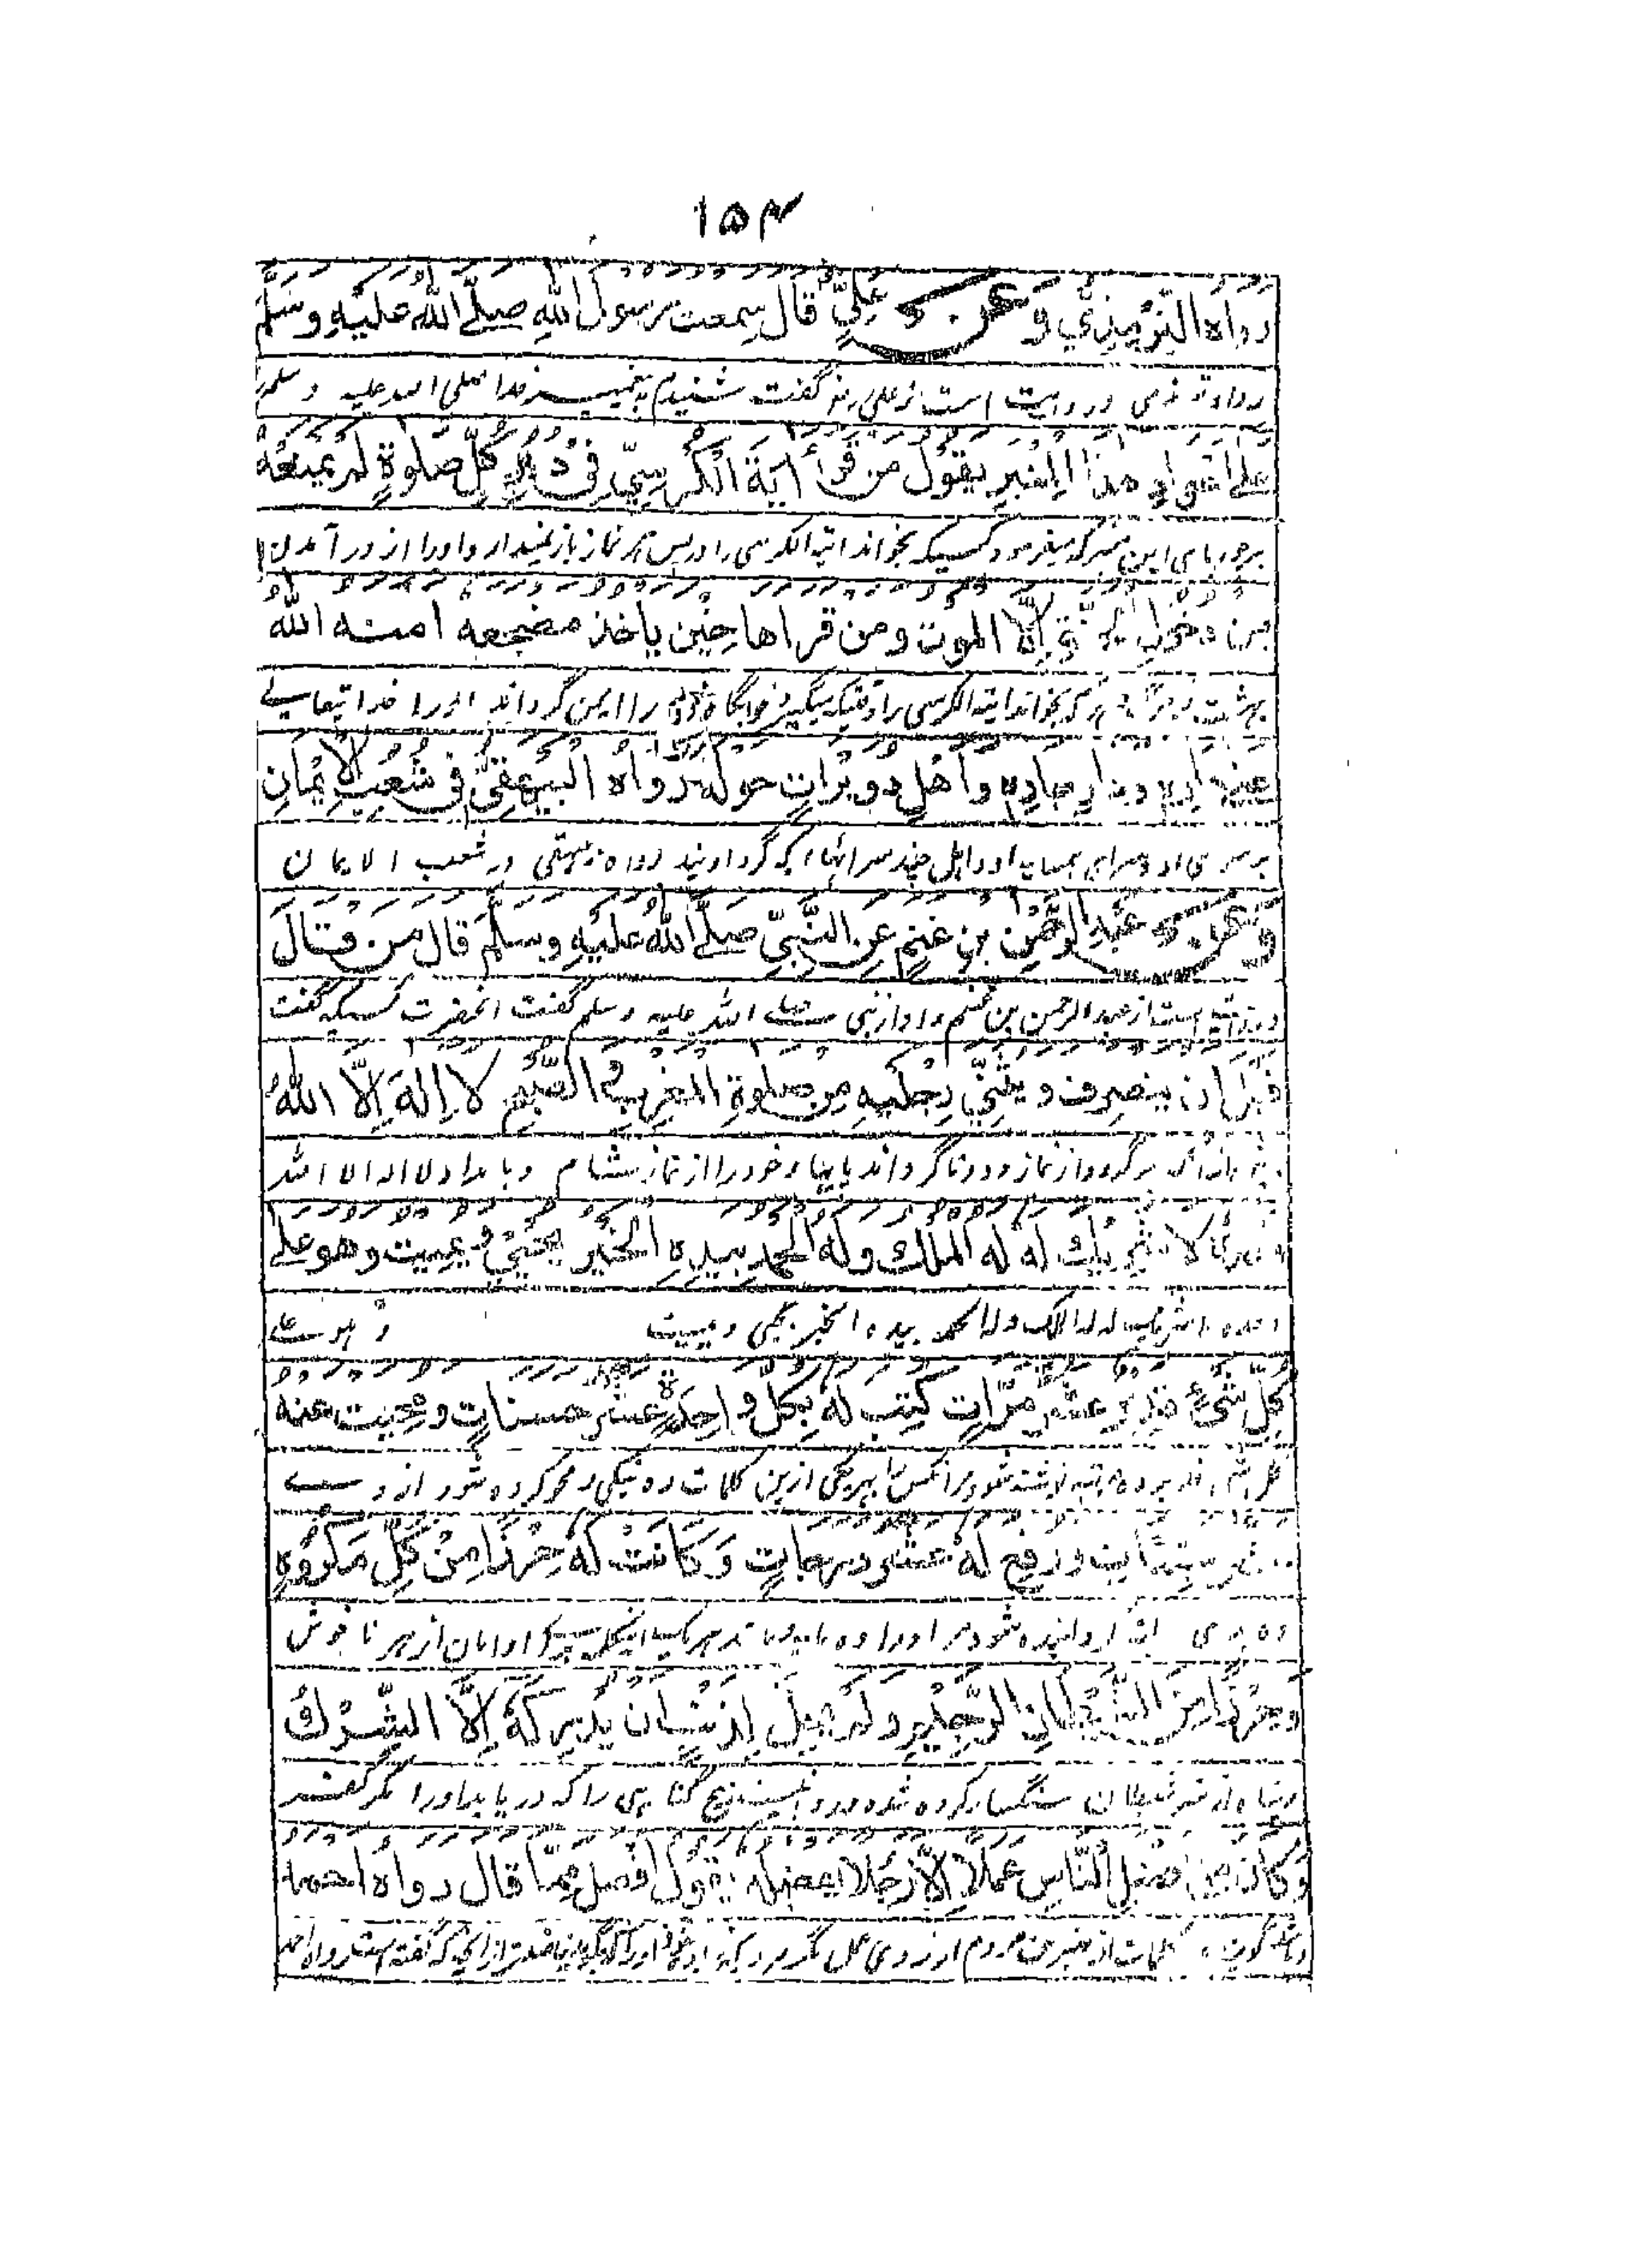 ۱۵۴
رواه الترمذي وعن علي قال سمعت رسول الله صلى الله عليه وسلم
رواه ترمذی و روایت است از علی رضہ گفت شنیدم پیغمبر خدا صلی الله علیه وسلم
على اعواد هذا المنبر يقول من قرأ آية الكرسي في دبر كل صلوة لم يمنعه
این منبر که میفرمود کسیکه بخواند آیة الکرسی را در پس هر نماز باز نمیدارد او را از در آمدن
من دخول الجنة إلا الموت ومن قراها حين ياخذ مضجعه امنه الله
بهشت مگر که بخواند آیة الکرسی را وقتیکه میگیرد خوابگاه خود را ایمن گرداند او را خدا تیعالی
على داره ودار جاره وأهل دويرات حوله رواه البيهقي في شعب الإيمان
بر سرای او و سرای همسایه او و اهل چند سرا که گرد اویند رواه بیهقی در شعب الایمان
وعن عبد الرحمن بن غنم عن النبي صلى الله عليه وسلم قال من قال
و روایت است از عبد الرحمن بن غنم و او از نبی صلی الله علیه وسلم گفت آنحضرت کسیکه گفت
قبل ان ينصرف ويثني رجليه من صلوة المغرب والصبح لا إله إلا الله
از آنکه برگردد از نماز و دوتا گرداند پایهاء خود را از نماز شام و بامداد لا اله الا الله
وحده لا شريك له له الملك وله الحمد بيده الخير يحيي ويميت وهو على
وحده لا شریک له له الملک وله الحمد بیده الخیر یحیی و یمیت و هو علی
كل شيء قدير عشر مرات كتب له بكل واحدة عشر حسنات ومحيت عنه
کل شیء قدیر ده مرتبه نوشته شود مر آنکس را بهر یکی ازین کلمات ده نیکی و محو کرده شود از وے
عشر سيئات ورفع له عشر درجات وكانت له حرزا من كل مكروه
ده بدی شود مر او را ده امان از هر ناخوش
وحرزا من الشيطان الرجيم ولم يحل لذنب ان يدركه إلا الشرك
و پناه از شر شیطان سنگسار کرده شده هیچ گناهی را که دریابد او را مگر
وكان من افضل الناس عملا إلا رجلا يفضله يقول افضل مما قال رواه احمد
کلمات از بهترین مردم از روی عمل مگر مردیکه از آنچه که گفته است رواه احمد